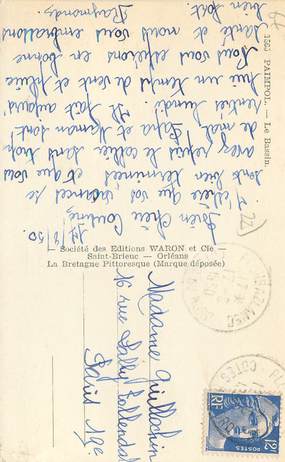 1565 PAIMPOL. — Le Bassin.
17/9/50.
Bien Chère Cousine
J'espère que vos vacances se
sont bien terminées et que vous
avez repris le collier sans trop
de mal. Papa et Maman sont
rentrés lundi. Il fait aujourd'
hui un temps de vent et pluie
Nous vous espérons en bonne
santé et nous vous embrassons
bien fort.
Raymonde.
— Société des Editions WARON et Cie —
Saint-Brieuc — Orléans
La Bretagne Pittoresque (Marque déposée)
Madame Guillochin
16 rue
Paris 19e
12F
RF
POSTES